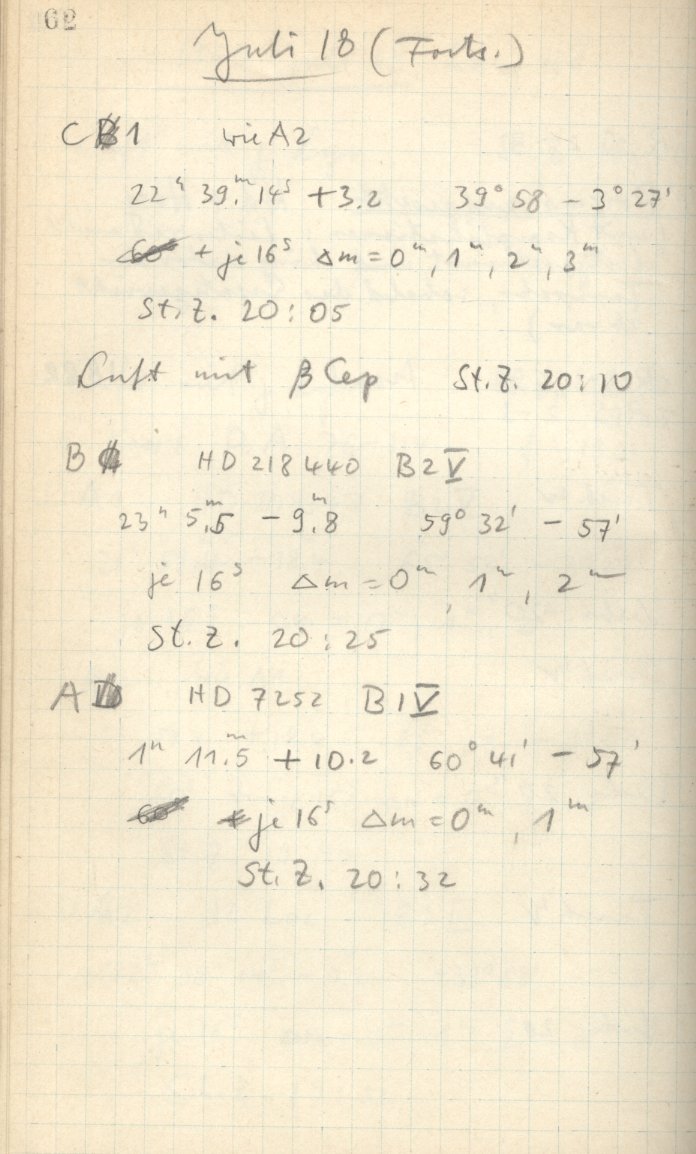 62
Juli 18 (Forts.)
C 1 wie A2
22ʰ 39.ᵐ14ˢ +3.2 39° 58 − 3° 27'
+ je 16ˢ Δm = 0ᵐ, 1ᵐ, 2ᵐ, 3ᵐ
St.Z. 20:05
Luft mit β Cep St.Z. 20:10
B HD 218440 B2V
23ʰ 5.ᵐ5 − 9.ᵐ8 59° 32' − 57'
je 16ˢ Δm = 0ᵐ, 1ᵐ, 2ᵐ
St.Z. 20:25
A HD 7252 B1V
1ʰ 11.ᵐ5 + 10.2 60° 41' − 57'
je 16ˢ Δm = 0ᵐ, 1ᵐ
St.Z. 20:32